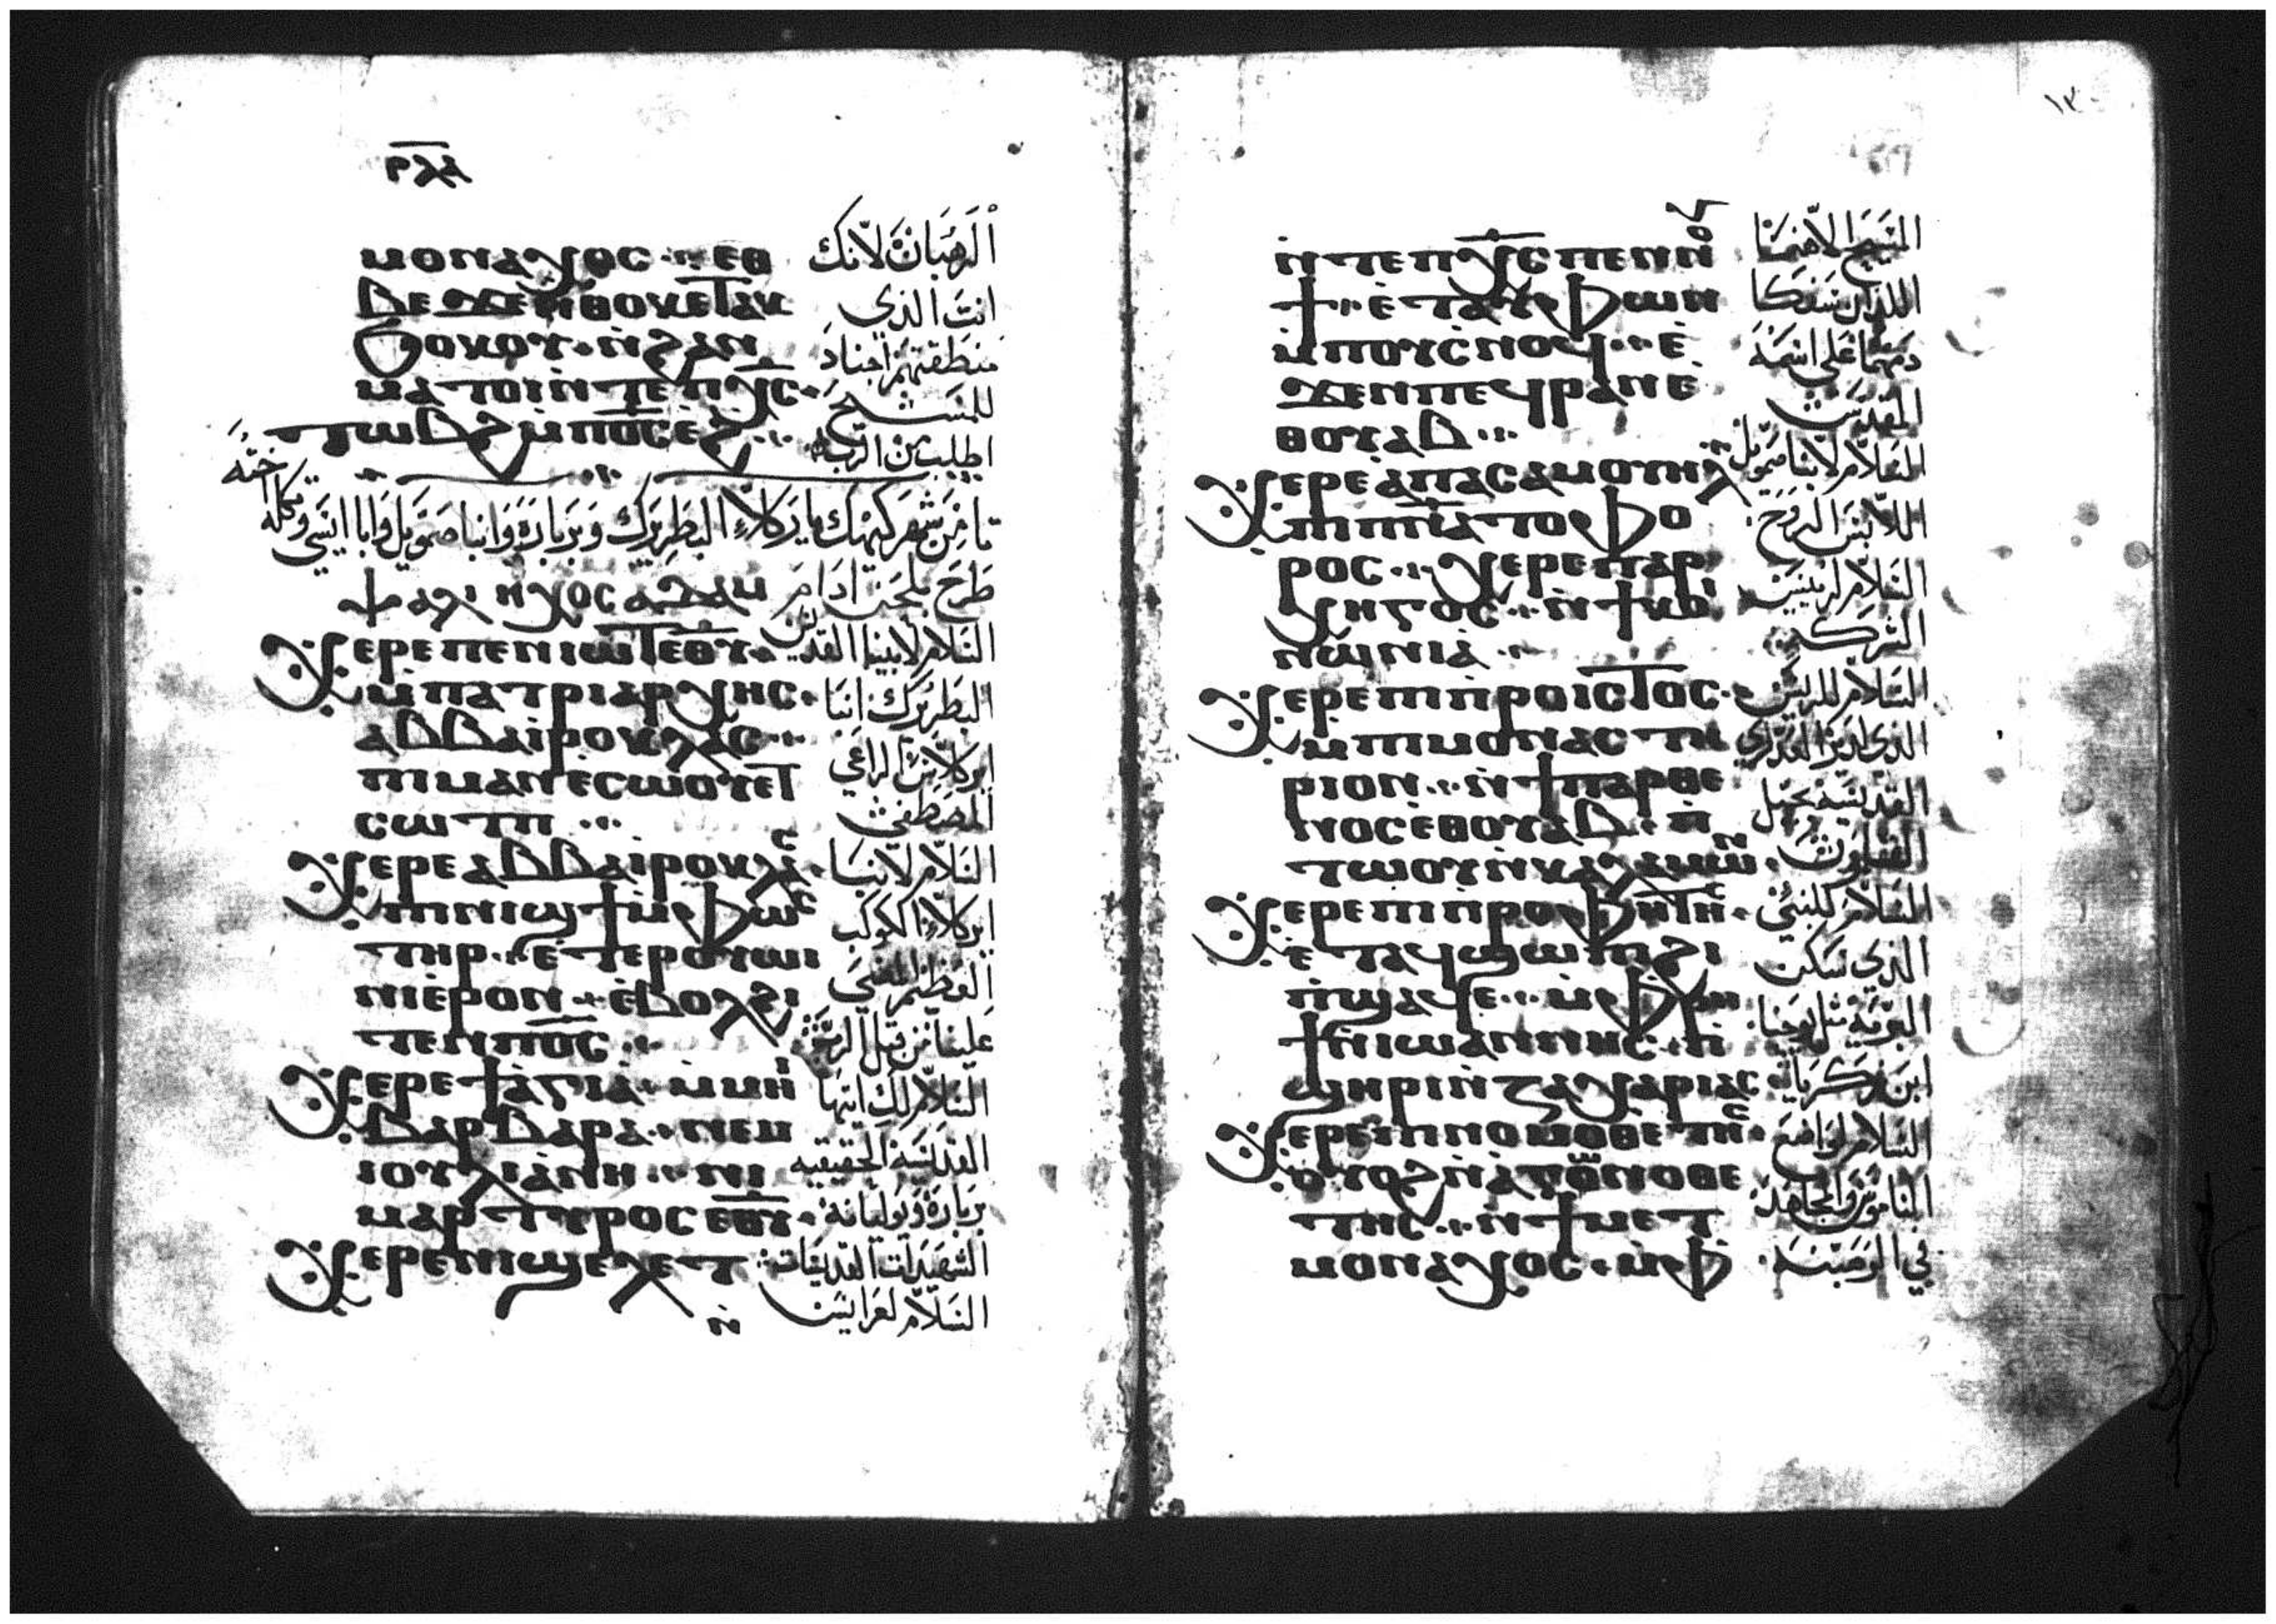 ⲣⲗⲁ
ⲙⲟⲛⲁⲭⲟⲥ ⲉⲑ الرهبان لانك
ⲃⲉϫⲉⲛⲑⲟⲕⲉⲧⲁⲕ انت الذي
ϭⲟⲕⲟⲩ ⲛ̀ϩⲁⲛ منطقتهم اجناد
ⲙⲁⲧⲟⲓⲛ̀ⲧⲉⲡⲭ̅ⲥ̅ للمسيح
ⲧⲱⲃϩⲙ̀ⲡⲟ̅ⲥ̅ⲉϩ اطلب من الرب
تامن شهر كيهك ياركلاء البطريرك وبربارة وانبا صمويل وابا ايسي وتكله اخته
ⲯⲁⲗⲓ ⲏⲭⲟⲥ ⲁⲇⲁⲙ طرح بلحن ادام
ⲭⲉⲣⲉⲡⲉⲛⲓⲱⲧⲉⲑⲩ السلام لابينا القديس
ⲙ̀ⲡⲁⲧⲣⲓⲁⲣⲭⲏⲥ البطريرك انبا
ⲁⲃⲃⲁⲓⲣⲟⲩⲕⲗⲁⲥ ايركلاس الراعي
ⲡⲓⲙⲁⲛⲉⲥⲱⲟⲩⲉⲧ المصطفى
ⲥⲱⲧⲡ
ⲭⲉⲣⲉⲁⲃⲃⲁⲓⲣⲟⲩⲕⲗⲁⲥ السلام لانبا
ⲡⲓⲛⲓϣϯⲙ̀ⲫⲱⲥ ايركلاء الكوكب
ⲧⲏⲣ ⲉⲧⲉⲣⲟⲩⲱⲓ العظيم المضي
ⲛⲓⲉⲣⲟⲛ ⲉⲃⲟⲗϩⲓ علينا من قبل الرب
ⲧⲉⲛⲡⲟ̅ⲥ̅
ⲭⲉⲣⲉϯⲁⲅⲓⲁ ⲙ̀ⲙⲏⲓ السلام لك ايتها
ⲃⲁⲣⲃⲁⲣⲁ ⲛⲉⲙ القديسة الحقيقيه
ⲓⲟⲩⲗⲓⲁⲛⲏ ⲛⲓ بربارة ويوليانة
ⲙⲁⲣⲧⲩⲣⲟⲥⲉⲑⲩ الشهيدات القديسات
ⲭⲉⲣⲉⲛⲓϣⲉⲗⲉⲧ السلام لعرايس
ⲛ̀
١٣٠
ⲛ̀ⲧⲉⲡⲭ̅ⲥ̅ⲡⲉⲛⲛⲟⲩ المسيح الاهنا
ϯ ⲉⲧⲁⲩⲫⲱⲛ اللذان سفكا
ⲙ̀ⲡⲟⲩⲥⲛⲟϥ ⲉ دمهما على اسمه
ϫⲉⲛⲡⲉϥⲣⲁⲛⲉ المقدس
ⲑⲟⲩⲁⲃ
ⲭⲉⲣⲉⲁⲡⲁⲥⲁⲙⲟⲩⲏⲗ السلام لانبا صمويل
ⲡⲓⲡ̅ⲛ̅ⲁ̅ⲧⲟⲫⲟ اللابس الروح
ⲣⲟⲥ ⲭⲉⲣⲉⲡⲁⲣ السلام لرييس
ⲭⲏⲅⲟⲥ ⲛ̀ϯⲕⲟⲓ الشركه
ⲛⲱⲛⲓⲁ
ⲭⲉⲣⲉⲡⲓⲡⲣⲟⲓⲥⲧⲟⲥ السلام للرييس
ⲙ̀ⲡⲓⲙⲟⲛⲁⲥⲧⲏ الذي لدير العذري
ⲣⲓⲟⲛ ⲛ̀ϯⲡⲁⲣⲑⲉ القديسة بجبل
ⲛⲟⲥⲉⲑⲟⲩⲁⲃ ⲡ القلمون
ⲧⲱⲟⲩⲛ̀ⲕⲁⲗⲁⲙⲱⲛ
ⲭⲉⲣⲉⲡⲓⲡⲣⲟⲫⲏⲧⲏⲥ السلام للنبي
ⲉⲧⲁϥϣⲱⲡⲓϩⲓ الذي سكن
ⲡ̀ϣⲁϥⲉ ⲙ̀ⲫⲣⲏ البرية مثل يوحنا
ϯⲛⲓⲱⲁⲛⲛⲏⲥ ⲡ ابن زكريا
ϣⲏⲣⲓⲛ̀ⲍⲁⲭⲁⲣⲓⲁⲥ
ⲭⲉⲣⲉⲡⲓⲛⲟⲙⲟⲑⲉⲧⲏⲥ السلام لواضع
ⲟⲩⲟϩⲛ̀ⲁⲅⲱⲛⲟⲑⲉ الناموس والمجاهد
ⲧⲏⲥ ⲛ̀ϯⲙⲉⲧ في الرهبنة
ⲙⲟⲛⲁⲭⲟⲥ ⲙ̀ⲫ